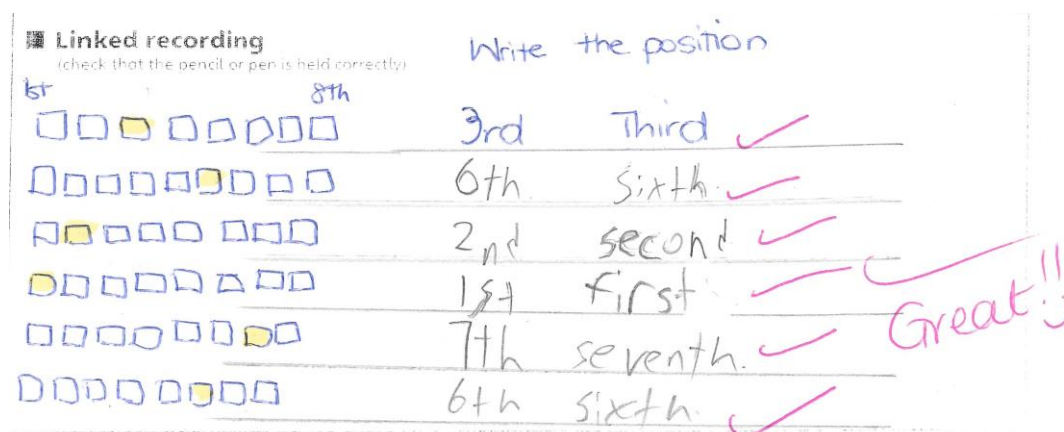 Linked recording
(check that the pencil or pen is held correctly)
Write the position
1st 8th
3rd Third
6th sixth.
2nd second
1st first
Great!!
7th seventh.
6th sixth.